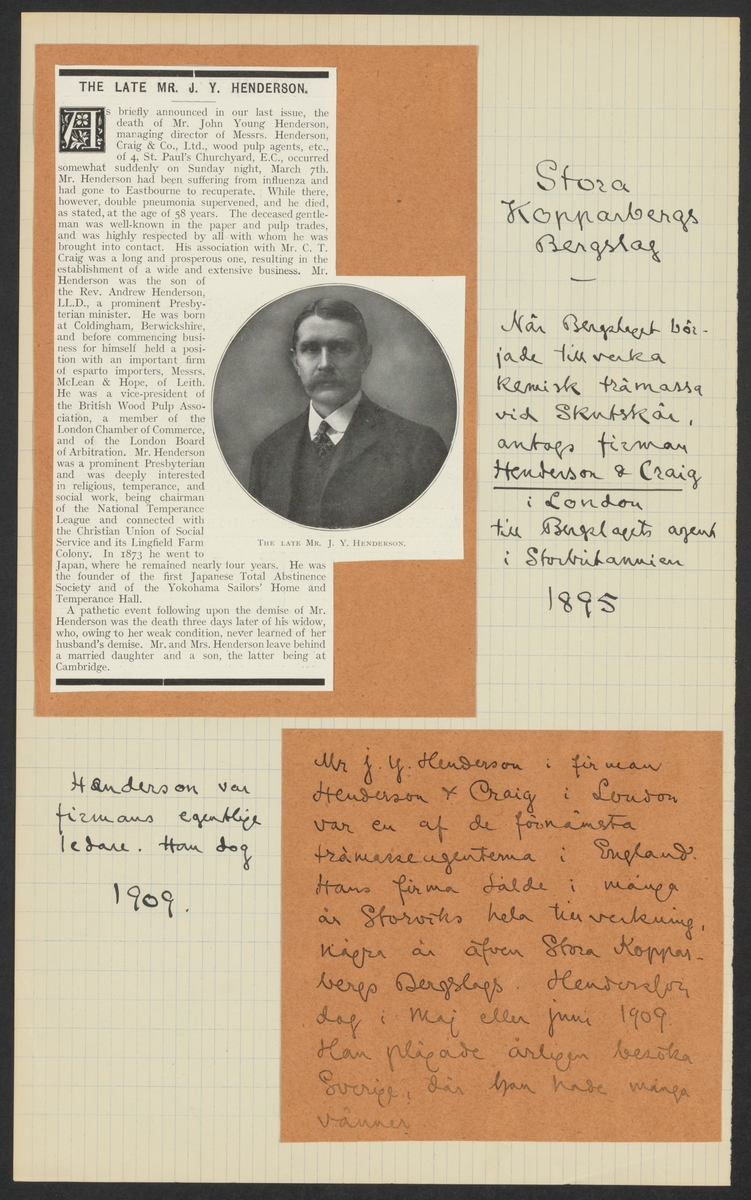 THE LATE MR. J. Y. HENDERSON.
As briefly announced in our last issue, the
death of Mr. John Young Henderson,
managing director of Messrs. Henderson,
Craig & Co., Ltd., wood pulp agents, etc.,
of 4, St. Paul's Churchyard, E.C., occurred
somewhat suddenly on Sunday night, March 7th.
Mr. Henderson had been suffering from influenza and
had gone to Eastbourne to recuperate. While there,
however, double pneumonia supervened, and he died,
as stated, at the age of 58 years. The deceased gentle-
man was well-known in the paper and pulp trades,
and was highly respected by all with whom he was
brought into contact. His association with Mr. C. T.
Craig was a long and prosperous one, resulting in the
establishment of a wide and extensive business. Mr.
Henderson was the son of
the Rev. Andrew Henderson,
LL.D., a prominent Presby-
terian minister. He was born
at Coldingham, Berwickshire,
and before commencing busi-
ness for himself held a posi-
tion with an important firm
of esparto importers, Messrs.
McLean & Hope, of Leith.
He was a vice-president of
the British Wood Pulp Asso-
ciation, a member of the
London Chamber of Commerce,
and of the London Board
of Arbitration. Mr. Henderson
was a prominent Presbyterian
and was deeply interested
in religious, temperance, and
social work, being chairman
of the National Temperance
League and connected with
the Christian Union of Social
Service and its Lingfield Farm
Colony. In 1873 he went to
Japan, where he remained nearly four years. He was
the founder of the first Japanese Total Abstinence
Society and of the Yokohama Sailors' Home and
Temperance Hall.
A pathetic event following upon the demise of Mr.
Henderson was the death three days later of his widow,
who, owing to her weak condition, never learned of her
husband's demise. Mr. and Mrs. Henderson leave behind
a married daughter and a son, the latter being at
Cambridge.
THE LATE MR. J. Y. HENDERSON.
Stora
Kopparbergs
Bergslag
När Bergslaget bör-
jade tillverka
kemisk trämassa
vid Skutskär,
antogs firman
Henderson & Craig
i London
till Bergslagets agent
i Storbritannien
1895
Henderson var
firmans egentlige
ledare. Han dog
1909.
Mr J. Y. Henderson i firman
Henderson & Craig i London
var en af de förnämsta
trämasseagenterna i England.
Hans firma sålde i många
år Storviks hela tillverkning,
några år äfven Stora Koppar-
bergs Bergslags. Henderson
dog i Maj eller juni 1909.
Han plägade årligen besöka
Sverige, där han hade många
vänner.